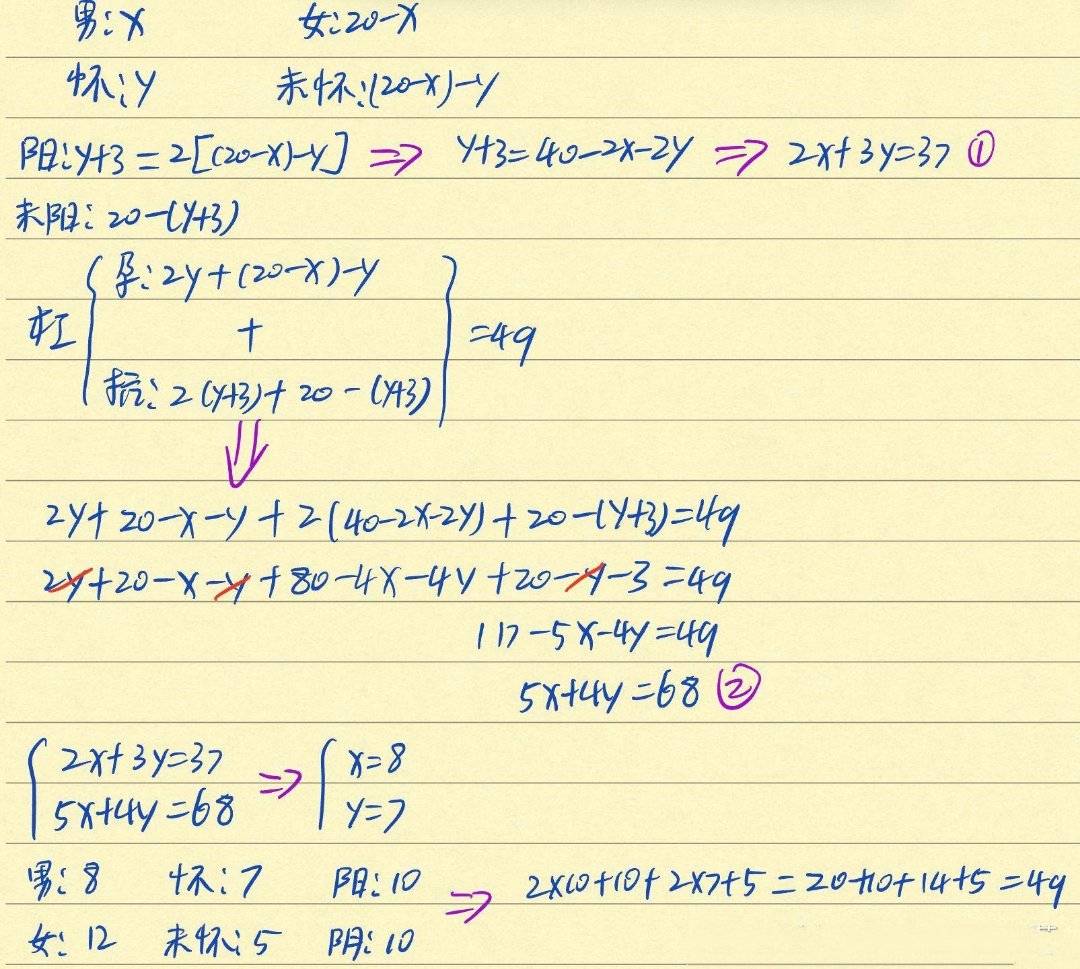 男:x 女:20-x
怀:y 未怀:(20-x)-y
阳:y+3=2[(20-x)-y] ⇒ y+3=40-2x-2y ⇒ 2x+3y=37 ①
未阳:20-(y+3)
孕:2y+(20-x)-y
杠 + =49
抗:2(y+3)+20-(y+3)
⇓
2y+20-x-y+2(40-2x-2y)+20-(y+3)=49
2y+20-x-y+80-4x-4y+20-y-3=49
117-5x-4y=49
5x+4y=68 ②
2x+3y=37 ⇒ x=8
5x+4y=68 y=7
男:8 怀:7 阳:10 ⇒ 2×10+10+2×7+5=20+10+14+5=49
女:12 未怀:5 阴:10